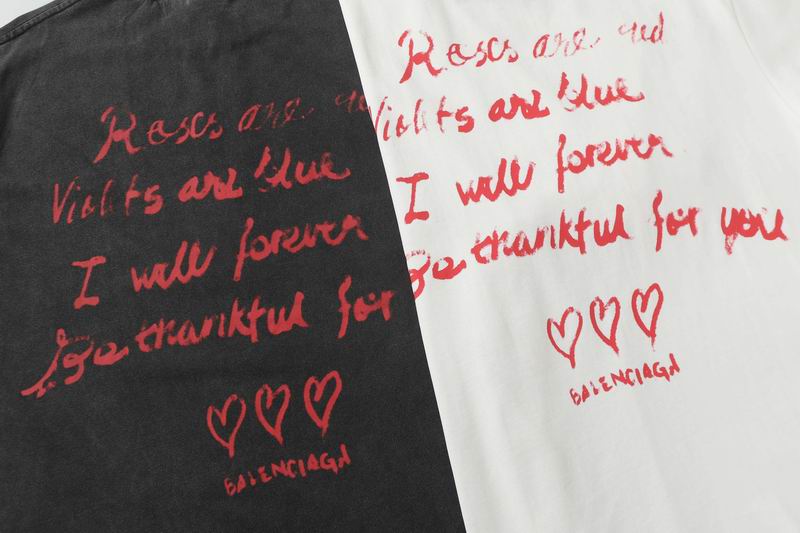 Roses are red
Violets are blue
I will forever
Be thankful for
BALENCIAGA
Roses are red
Violets are blue
I will forever
Be thankful for you
BALENCIAGA